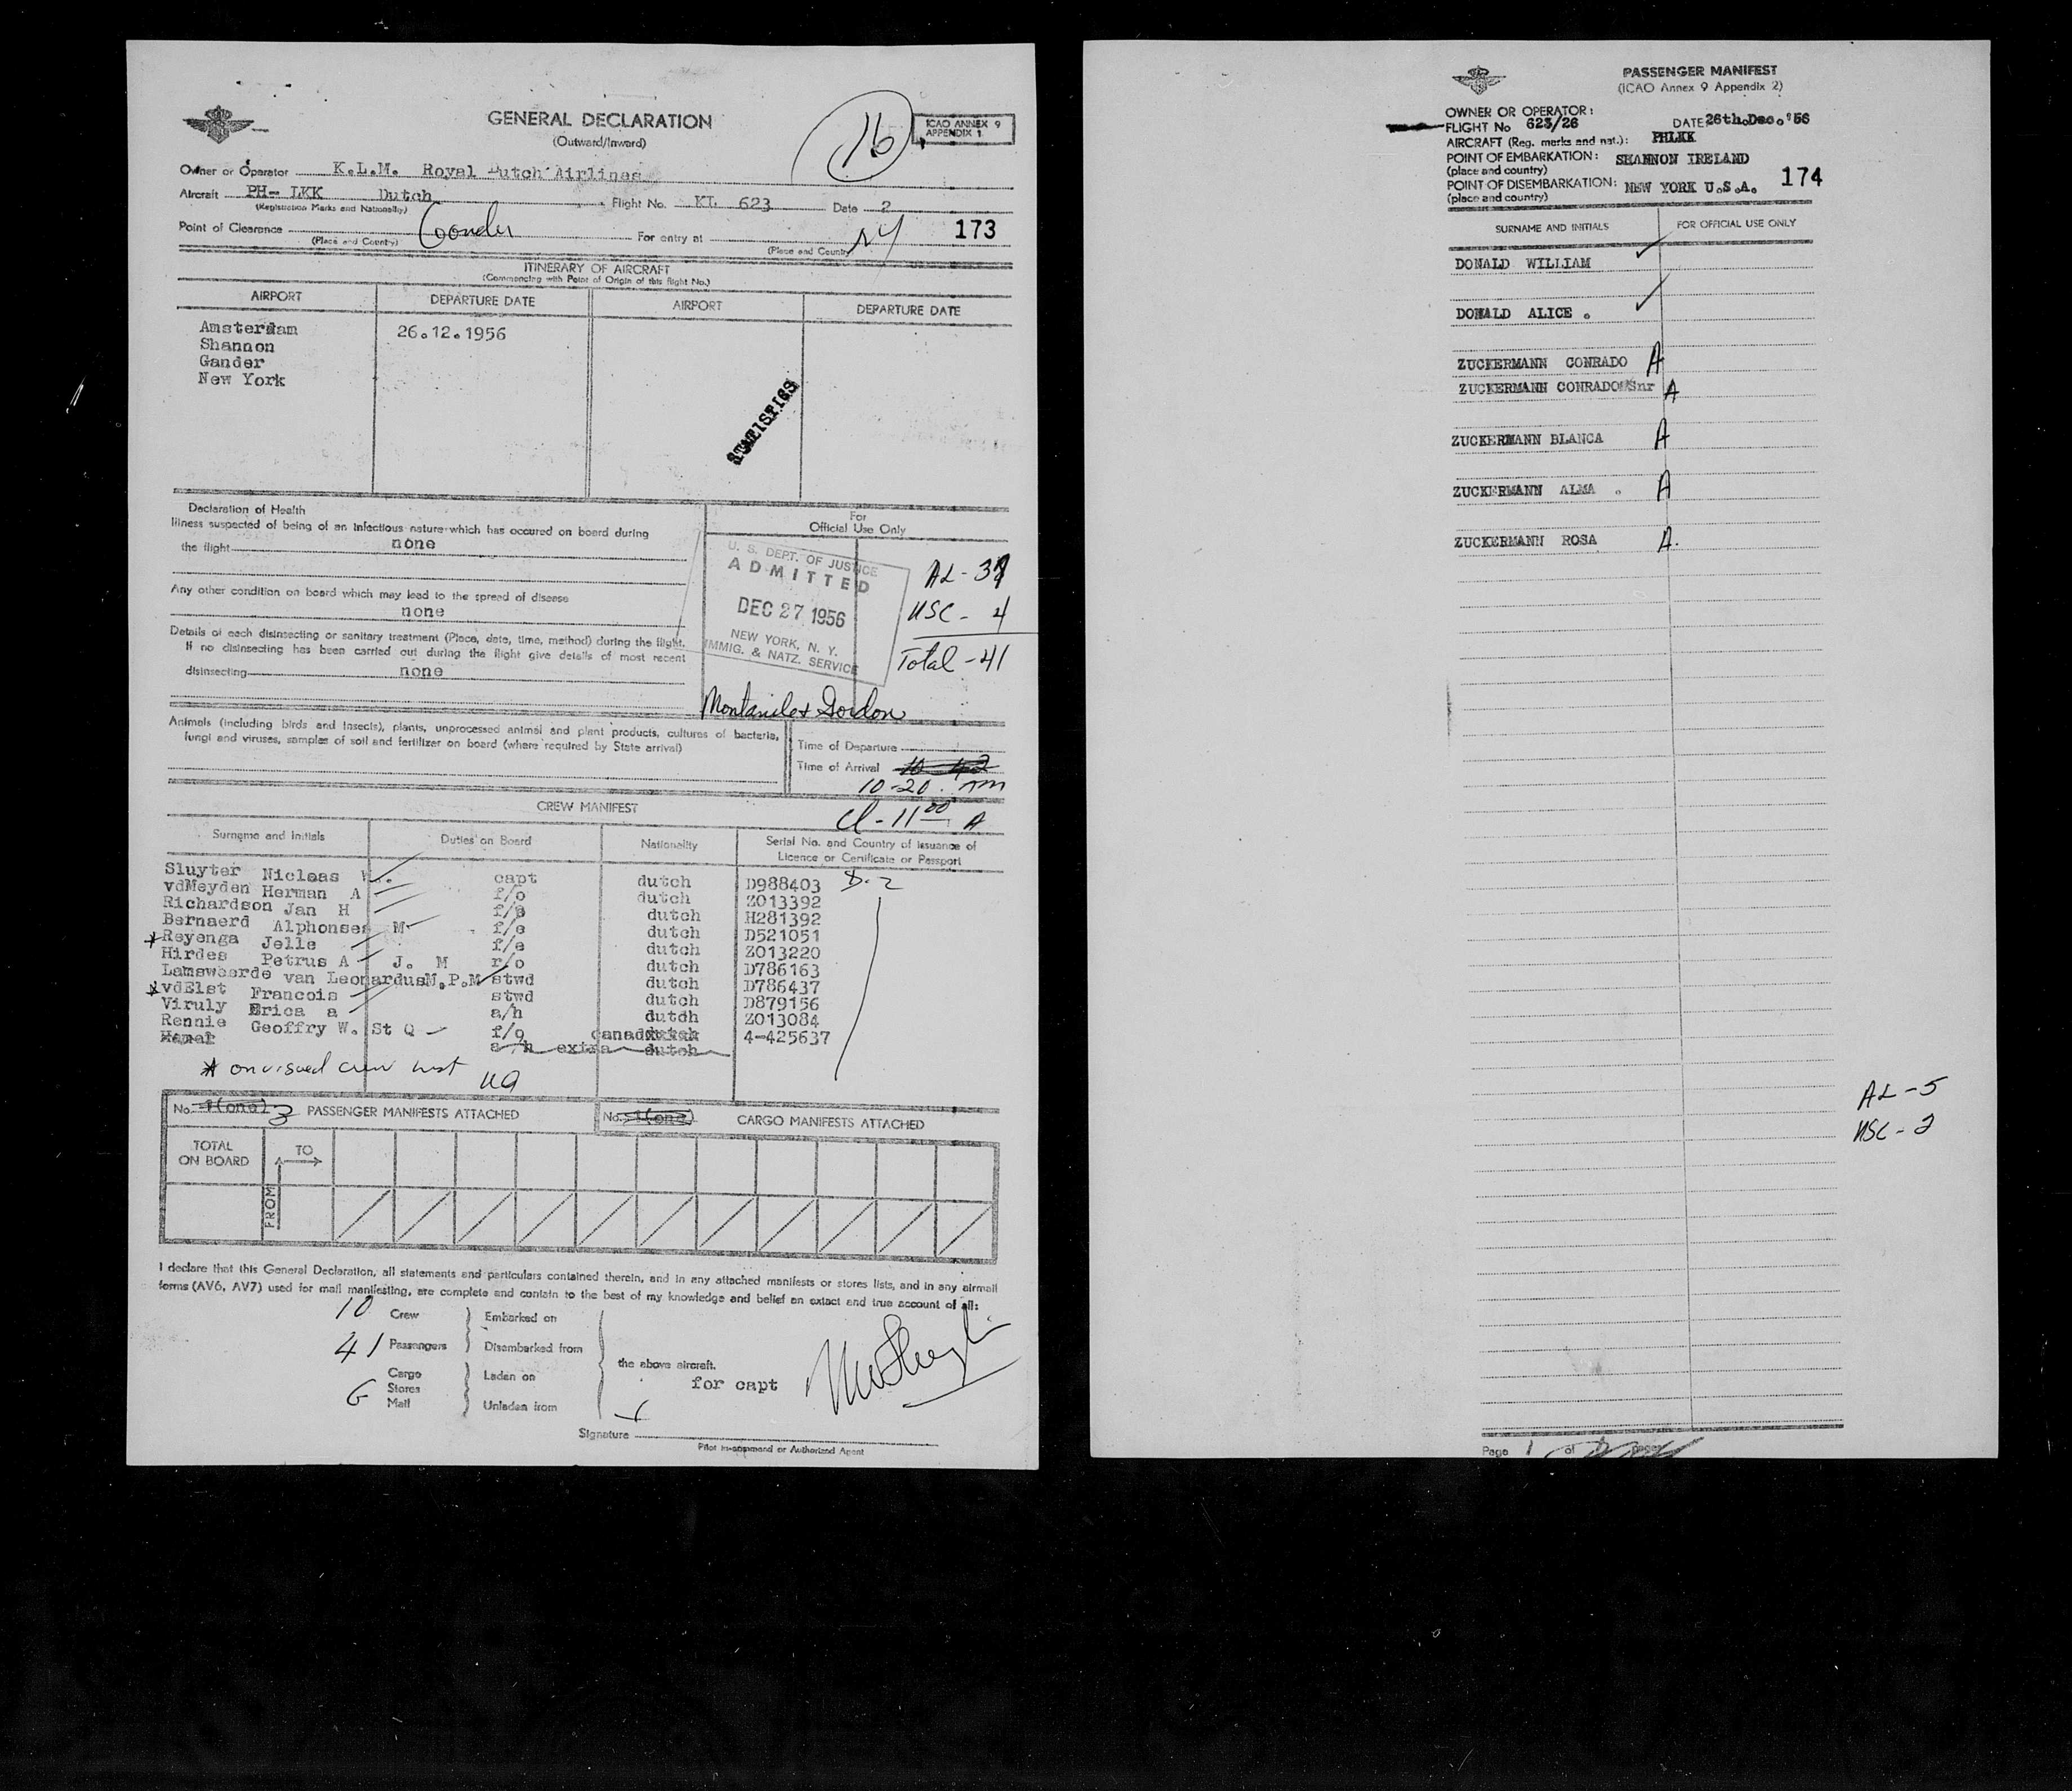 GENERAL DECLARATION
(Outward/Inward)
16
ICAO ANNEX 9
APPENDIX 1
Owner or Operator K.L.M. Royal Dutch Airlines
Aircraft PH-LKK Dutch Flight No. KL 623 Date 2
(Registration Marks and Nationality)
Point of Clearance Gander For entry at NY 173
(Place and Country) (Place and Country)
ITINERARY OF AIRCRAFT
(Commencing with Point of Origin of this flight No.)
AIRPORT DEPARTURE DATE AIRPORT DEPARTURE DATE
Amsterdam 26.12.1956
Shannon
Gander
New York
STATISTICS
Declaration of Health
Illness suspected of being of an infectious nature which has occured on board during
the flight none
Any other condition on board which may lead to the spread of disease
none
Details of each disinsecting or sanitary treatment (Place, date, time, method) during the flight.
If no disinsecting has been carried out during the flight give details of most recent
disinsecting none
For
Official Use Only
U. S. DEPT. OF JUSTICE
ADMITTED
DEC 27 1956
NEW YORK, N. Y.
IMMIG. & NATZ. SERVICE
AL - 37
USC - 4
Total - 41
Gordon
Animals (including birds and insects), plants, unprocessed animal and plant products, cultures of bacteria,
fungi and viruses, samples of soil and fertilizer on board (where required by State arrival)
Time of Departure
Time of Arrival 10 42
10-20
Cl - 11 00 A
CREW MANIFEST
Surname and Initials Duties on Board Nationality Serial No. and Country of Issuance of
Licence or Certificate or Passport
Sluyter Nicleas capt dutch D988403 D-2
vdMeyden Herman A f/o dutch Z013392
Richardson Jan H dutch H281392
Bernaerd Alphonses M f/e dutch D521051
Reyenga Jelle f/e dutch Z013220
Hirdes Petrus A J. M r/o dutch D786163
Lamsweerde van LeonardusM.P.M stwd dutch D786437
vdElst Francois stwd dutch D879156
Viruly Erica a a/h dutch Z013084
Rennie Geoffry W. St Q f/o canad 4-425637
a/h extra dutch
* on visaed crew list
No. 1(one) 3 PASSENGER MANIFESTS ATTACHED No. 1(one) CARGO MANIFESTS ATTACHED
TOTAL
ON BOARD
TO
FROM
I declare that this General Declaration, all statements and particulars contained therein, and in any attached manifests or stores lists, and in any airmail
forms (AV6, AV7) used for mail manifesting, are complete and contain to the best of my knowledge and belief an extact and true account of all:
10 Crew Embarked on
41 Passengers Disembarked from
the above aircraft.
Cargo Laden on
for capt
6 Stores
Mail Unladen from
Signature
Pilot in-command or Authorized Agent
PASSENGER MANIFEST
(ICAO Annex 9 Appendix 2)
OWNER OR OPERATOR:
FLIGHT No 623/26 DATE 26th.Dec.'56
AIRCRAFT (Reg. marks and nat.): PHLKK
POINT OF EMBARKATION: SHANNON IRELAND
(place and country)
POINT OF DISEMBARKATION: NEW YORK U.S.A. 174
(place and country)
SURNAME AND INITIALS FOR OFFICIAL USE ONLY
DONALD WILLIAM
DONALD ALICE .
ZUCKERMANN CONRADO A
ZUCKERMANN CONRADO Snr A
ZUCKERMANN BLANCA A
ZUCKERMANN ALMA . A
ZUCKERMANN ROSA A.
AL - 5
USC - 2
Page 1 of